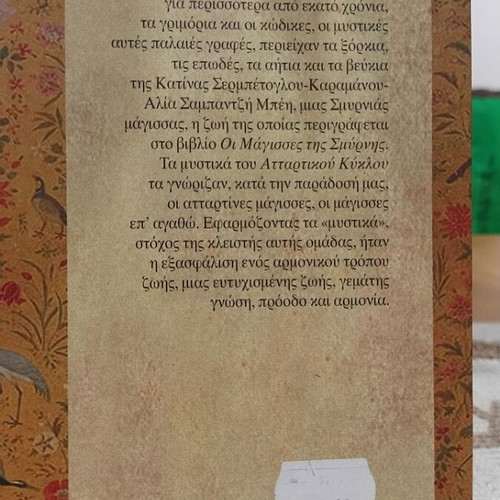 για περισσότερα από εκατό χρόνια,
τα γριμόρια και οι κώδικες, οι μυστικές
αυτές παλαιές γραφές, περιείχαν τα ξόρκια,
τις επωδές, τα αήτια και τα βεύκια
της Κατίνας Σερμπέτογλου-Καραμάνου-
Αλία Σαμπαντζή Μπέη, μιας Σμυρνιάς
μάγισσας, η ζωή της οποίας περιγράφεται
στο βιβλίο Οι Μάγισσες της Σμύρνης.
Τα μυστικά του Ατταρτικού Κύκλου
τα γνώριζαν, κατά την παράδοσή μας,
οι ατταρτίνες μάγισσες, οι μάγισσες
επ’ αγαθώ. Εφαρμόζοντας τα «μυστικά»,
στόχος της κλειστής αυτής ομάδας, ήταν
η εξασφάλιση ενός αρμονικού τρόπου
ζωής, μιας ευτυχισμένης ζωής, γεμάτης
γνώση, πρόοδο και αρμονία.